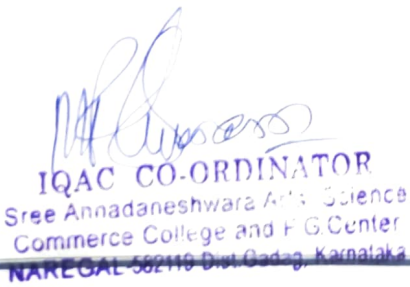 IQAC CO-ORDINATOR
Sree Annadaneshwara Arts, Science
Commerce College and P G.Center
NAREGAL-582119 Dist.Gadag, Karnataka